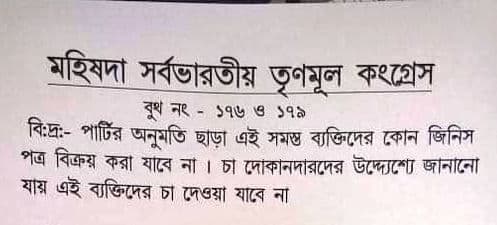 মহিষদা সর্বভারতীয় তৃণমূল কংগ্রেস
বুথ নং - ১৭৬ ও ১৭৯
বি:দ্র:- পার্টির অনুমতি ছাড়া এই সমস্ত ব্যক্তিদের কোন জিনিস
পত্র বিক্রয় করা যাবে না । চা দোকানদারদের উদ্দেশ্যে জানানো
যায় এই ব্যক্তিদের চা দেওয়া যাবে না